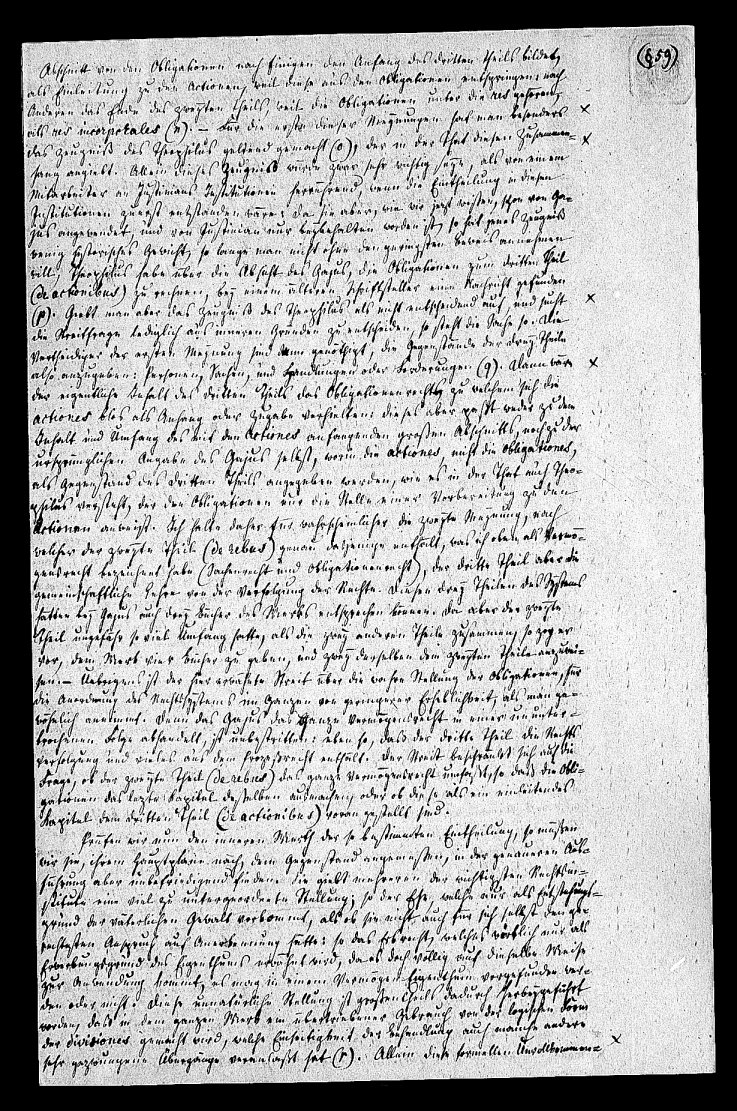 (§59)
Abschnitt von den Obligationen nach Einigen den Anfang des dritten Theils bildet,
als Einleitung zu den Actionen, weil diese aus den Obligationen entspringen; nach
Anderen das Ende des zweyten Theils, weil die Obligationen unter die res gehören,
als res incorporales (n). – Für die erste dieser Meynungen hat man besonders
das Zeugniß des Theophilus geltend gemacht (o), der in der That diesen Zusammen-
hang angiebt. Allein dieses Zeugniß würde zwar sehr wichtig seyn, als von einem
Mitarbeiter an Justinians Institutionen herrührend, wenn die Eintheilung in diesen
Institutionen zuerst entstanden wäre; da sie aber, wie wir jetzt wissen, schon von Ga-
jus angewendet, und von Justinian nur beybehalten worden ist, so hat jenes Zeugniß
wenig historisches Gewicht, so lange man nicht ohne den geringsten Beweis annehmen
will, Theophilus habe über die Absicht des Gajus, die Obligationen zum dritten Theil
(de actionibus) zu rechnen, bey einem älteren Schriftsteller eine Nachricht gefunden
(p). Giebt man aber das Zeugniß des Theophilus als nicht entscheidend auf, und sucht
die Streitfrage lediglich aus inneren Gründen zu entscheiden, so steht die Sache so. Die
Vertheidiger der ersten Meynung sind genöthigt, die Gegenstände der drey Theile
also anzugeben: Personen, Sachen, und Handlungen oder Forderungen (q). Dann wäre
der eigentliche Inhalt des dritten Theils das Obligationenrecht, zu welchem sich die
actiones blos als Anhang oder Zugabe verhielten: dieses aber paßt weder zu dem
Inhalt und Umfang des mit den Actiones anfangenden großen Abschnitts, noch zu der
ursprünglichen Angabe des Gajus selbst, worin die actiones, nicht die obligationes,
als Gegenstand des dritten Theils angegeben werden, wie es in der That auch Theo-
philus versteht, der den Obligationen nur die Stelle einer Vorbereitung zu den
Actionen anweist. Ich halte daher für wahrscheinlicher die zweyte Meynung, nach
welcher der zweyte Theil (de rebus) genau dasjenige enthält, was ich oben als Vermö-
gensrecht bezeichnet habe (Sachenrecht und Obligationenrecht), der dritte Theil aber die
gemeinschaftliche Lehre von der Verfolgung der Rechte. Diesen drey Theilen des Systems
hätten bey Gajus auch drey Bücher des Werks entsprechen können. Da aber der zweyte
Theil ungefähr so viel Umfang hatte, als die zwey anderen Theile zusammen, so zog er
vor, dem Werk vier Bücher zu geben, und zwey derselben dem zweyten Theile anzuwei-
sen. – Uebrigens ist der hier erwähnte Streit über die wahre Stellung der Obligationen, für
die Anordnung des Rechtssystems im Ganzen von geringerer Erheblichkeit, als man ge-
wöhnlich annimmt. Denn daß Gajus das ganze Vermögensrecht in einer ununter-
brochenen Folge abhandelt, ist unbestritten: eben so, daß der dritte Theil die Rechts-
verfolgung und vieles aus dem Prozeßrecht enthält. Der Streit beschränkt sich auf die
Frage, ob der zweyte Theil (de rebus) das ganze Vermögensrecht umfaßt, so daß die Obli-
gationen das letzte Kapitel desselben ausmachen, oder ob diese als ein einleitendes
Kapitel dem dritten Theil (de actionibus) voran gestellt sind.
Prüfen wir nun den inneren Werth der so bestimmten Eintheilung, so müssen
wir sie, ihrem Hauptplane nach, dem Gegenstand angemessen, in der genaueren Aus-
führung aber unbefriedigend finden. Sie giebt mehreren der wichtigsten Rechtsin-
stitute eine viel zu untergeordnete Stellung; so der Ehe, welche nur als Entstehungs-
grund der väterlichen Gewalt vorkommt, als ob sie nicht auch für sich selbst den ge-
rechtesten Anspruch auf Anerkennung hätte: so das Erbrecht, welches wörtlich nur als
Erwerbungsgrund des Eigenthums erwähnt wird, da es doch völlig auf dieselbe Weise
zur Anwendung kommt, es mag in einem Vermögen Eigenthum vorgefunden wer-
den oder nicht. Diese unnatürliche Stellung ist großentheils dadurch herbeygeführt
worden, daß in dem ganzen Werk ein übertriebener Gebrauch von der logischen Form
der divisiones gemacht wird, welche Einseitigkeit der Behandlung auch manche andere
sehr gezwungene Übergänge veranlaßt hat (r). Allein diese formellen Unvollkommen-